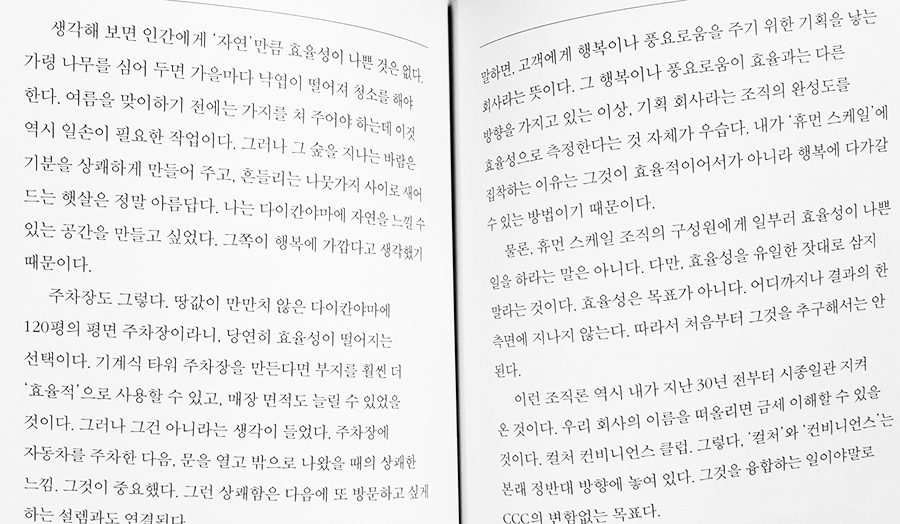 생각해 보면 인간에게 ‘자연’만큼 효율성이 나쁜 것은 없다.
가령 나무를 심어 두면 가을마다 낙엽이 떨어져 청소를 해야
한다. 여름을 맞이하기 전에는 가지를 쳐 주어야 하는데 이것
역시 일손이 필요한 작업이다. 그러나 그 숲을 지나는 바람은
기분을 상쾌하게 만들어 주고, 흔들리는 나뭇가지 사이로 새어
드는 햇살은 정말 아름답다. 나는 다이칸야마에 자연을 느낄 수
있는 공간을 만들고 싶었다. 그쪽이 행복에 가깝다고 생각했기
때문이다.
주차장도 그렇다. 땅값이 만만치 않은 다이칸야마에
120평의 평면 주차장이라니, 당연히 효율성이 떨어지는
선택이다. 기계식 타워 주차장을 만든다면 부지를 훨씬 더
‘효율적’으로 사용할 수 있고, 매장 면적도 늘릴 수 있었을
것이다. 그러나 그건 아니라는 생각이 들었다. 주차장에
자동차를 주차한 다음, 문을 열고 밖으로 나왔을 때의 상쾌한
느낌. 그것이 중요했다. 그런 상쾌함은 다음에 또 방문하고 싶게
하는 설렘과도 연결된다.
말하면, 고객에게 행복이나 풍요로움을 주기 위한 기획을 낳는
회사라는 뜻이다. 그 행복이나 풍요로움이 효율과는 다른
방향을 가지고 있는 이상, 기획 회사라는 조직의 완성도를
효율성으로 측정한다는 것 자체가 우습다. 내가 ‘휴먼 스케일’에
집착하는 이유는 그것이 효율적이어서가 아니라 행복에 다가갈
수 있는 방법이기 때문이다.
물론, 휴먼 스케일 조직의 구성원에게 일부러 효율성이 나쁜
일을 하라는 말은 아니다. 다만, 효율성을 유일한 잣대로 삼지
말라는 것이다. 효율성은 목표가 아니다. 어디까지나 결과의 한
측면에 지나지 않는다. 따라서 처음부터 그것을 추구해서는 안
된다.
이런 조직론 역시 내가 지난 30년 전부터 시종일관 지켜
온 것이다. 우리 회사의 이름을 떠올리면 금세 이해할 수 있을
것이다. 컬처 컨비니언스 클럽. 그렇다, ‘컬처’와 ‘컨비니언스’는
본래 정반대 방향에 놓여 있다. 그것을 융합하는 일이야말로
CCC의 변함없는 목표다.